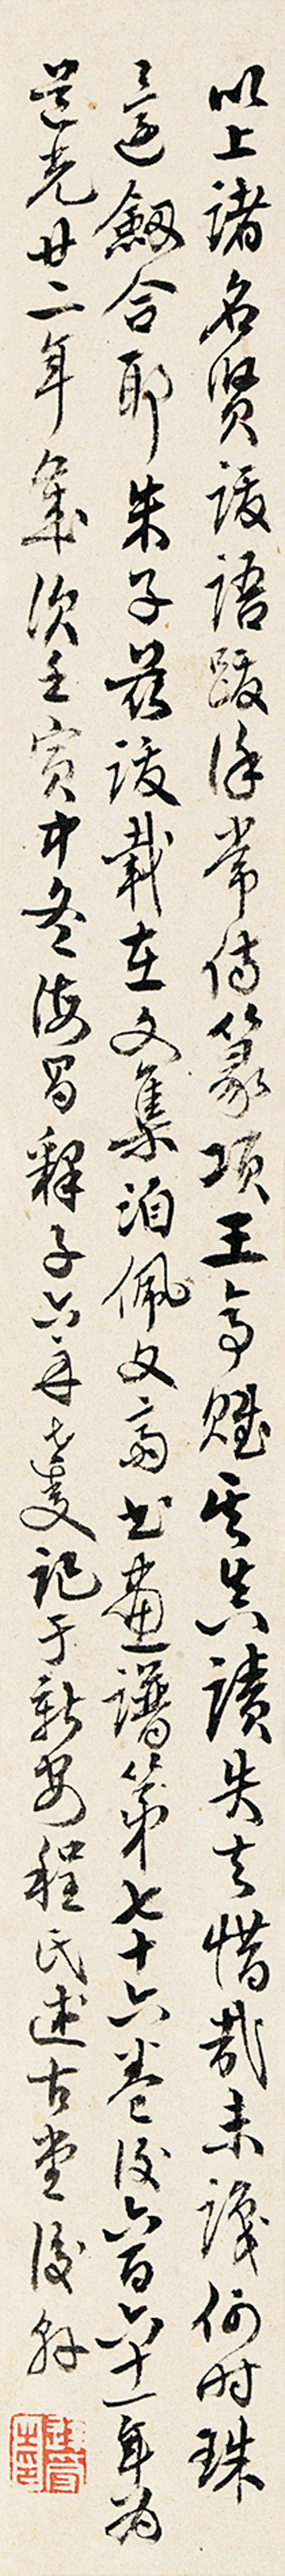 以上諸名賢跋語跋徐常侍篆項王亭賦其真蹟失去惜哉未識何时珠
還劍合耶朱子茲跋載在文集洎佩文齋書畫譜第七十六卷後六百六十一年為
道光廿二年歲次壬寅中冬海昌釋子六舟達受記于新安程氏述古堂後軒